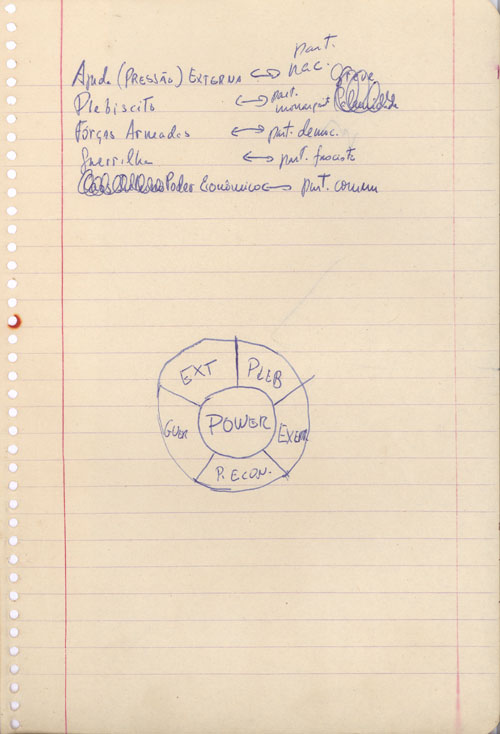 part.
Ajuda (PRESSÃO) EXTERNA ↔ nac. greve
Plebiscito ↔ part. monarquist
Fôrças Armadas ↔ part. democ.
Guerrilha ↔ part. fascista
Poder Econômico ↔ part. comun
EXT PLEB
GUER POWER EXERC
P. ECON.